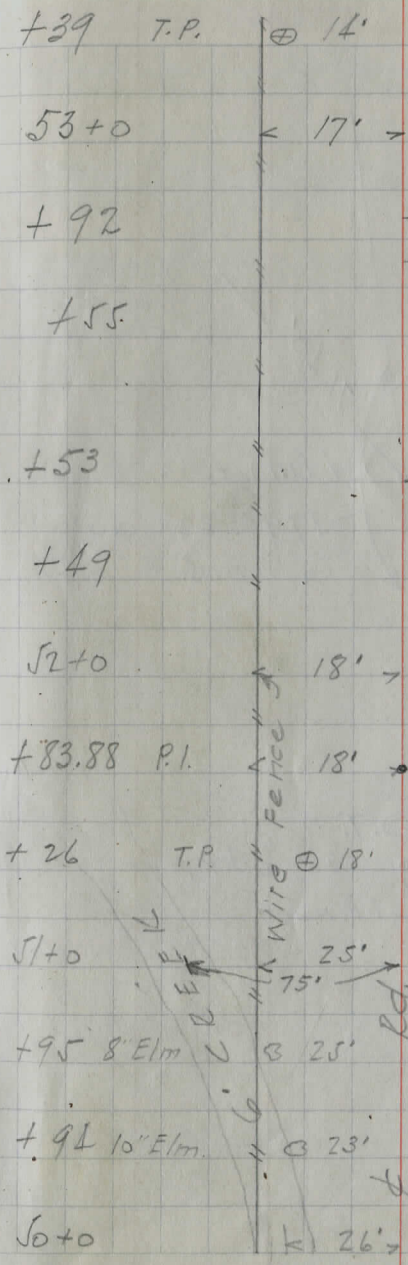 +39 T.P. 14'
53+0 17'
+92
+55
+53
+49
52+0 18'
+83.88 P.I. 18'
+26 T.P. 18'
51+0 25'
75'
+95 8" Elm 25'
+91 10" Elm. 23'
50+0 26'
Wire Fence
CREEK
6'
Rd.